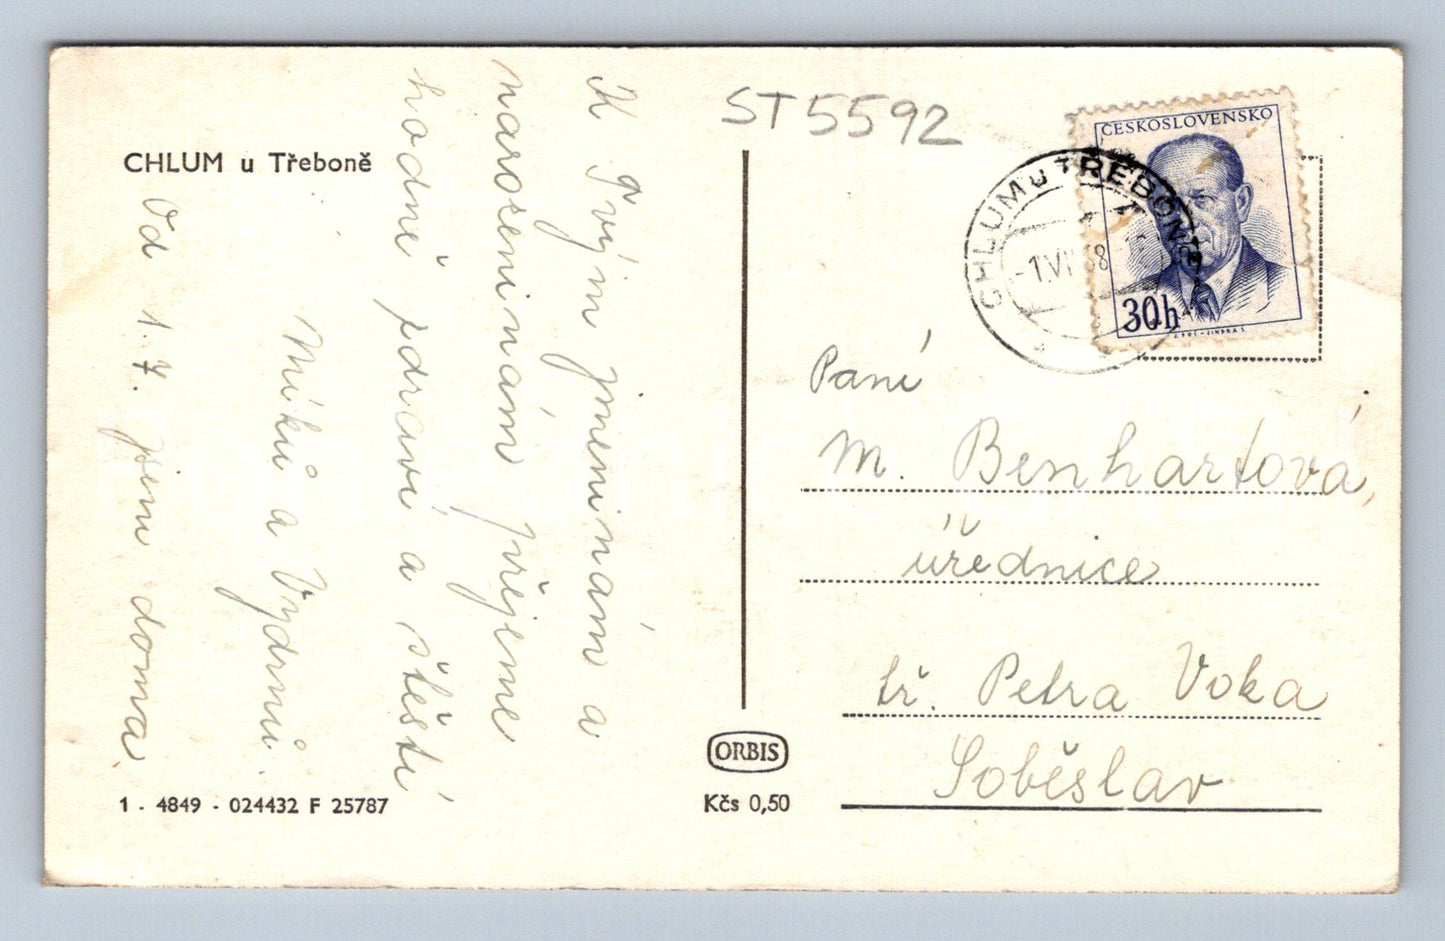 CHLUM u Třeboně
K Tvým jmeninám a
narozeninám přejeme
hodně zdraví a štěstí
Míků a Vydrů.
Od 1. 7. jsem doma.
1 - 4849 - 024432 F 25787
ST5592
ORBIS
Kčs 0,50
ČESKOSLOVENSKO
30h
CHLUM U TŘEBONĚ
Paní
M. Benhartová,
úřednice
tř. Petra Voka
Soběslav